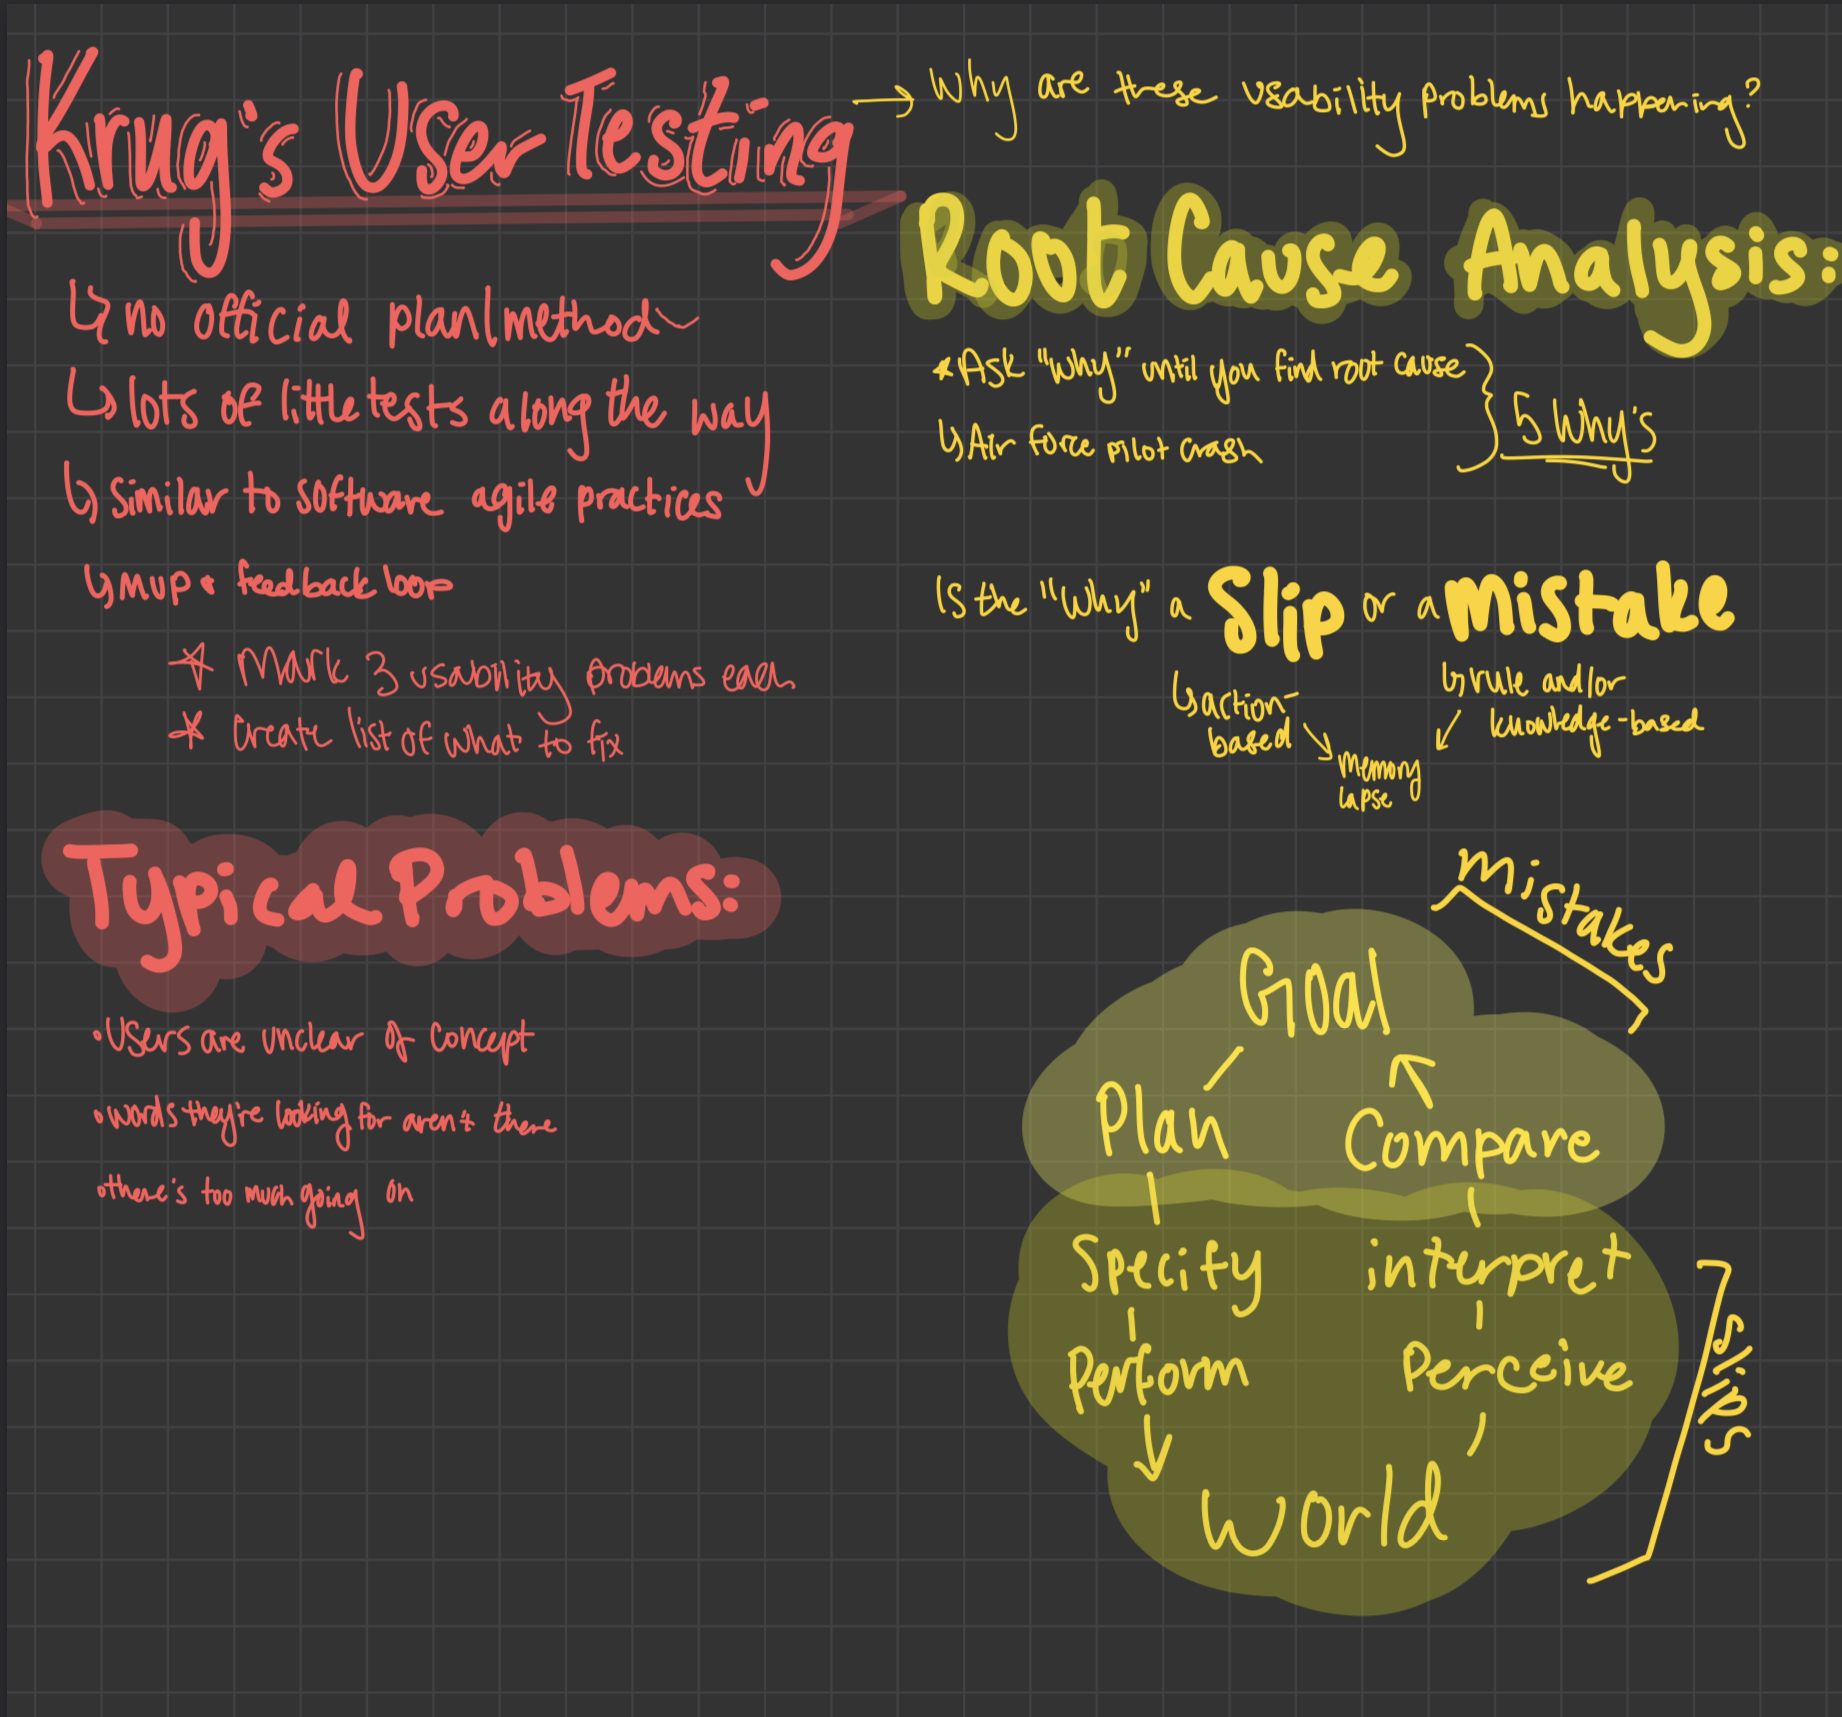 Krug's User Testing
↳ no official plan/method
↳ lots of little tests along the way
↳ similar to software agile practices
↳ MVP & feedback loop
* Mark 3 usability problems each
* Create list of what to fix
Typical Problems:
• Users are unclear of concept
• words they're looking for aren't there
• there's too much going on
→ Why are these usability problems happening?
Root Cause Analysis:
* Ask "Why" until you find root cause
↳ Air Force pilot crash
5 Why's
Is the "Why" a Slip or a Mistake
↳ action-
based
↳ rule and/or
knowledge-based
memory
lapse
Mistakes
Goal
Plan
Compare
Specify
interpret
Perform
Perceive
World
Slips